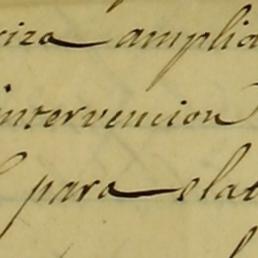 riza amplia
intervencion
para elat